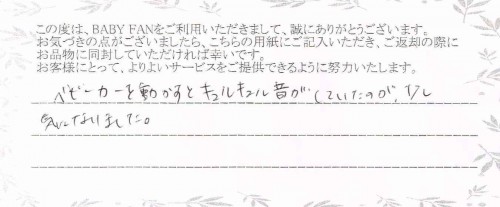 この度は、BABY FANをご利用いただきまして、誠にありがとうございます。
お気づきの点がございましたら、こちらの用紙にご記入いただき、ご返却の際に
お品物に同封していただければ幸いです。
お客様にとって、よりよいサービスをご提供できるように努力いたします。
ベビーカーを動かすとキュルキュル音がしていたのが、少し
気になりました。